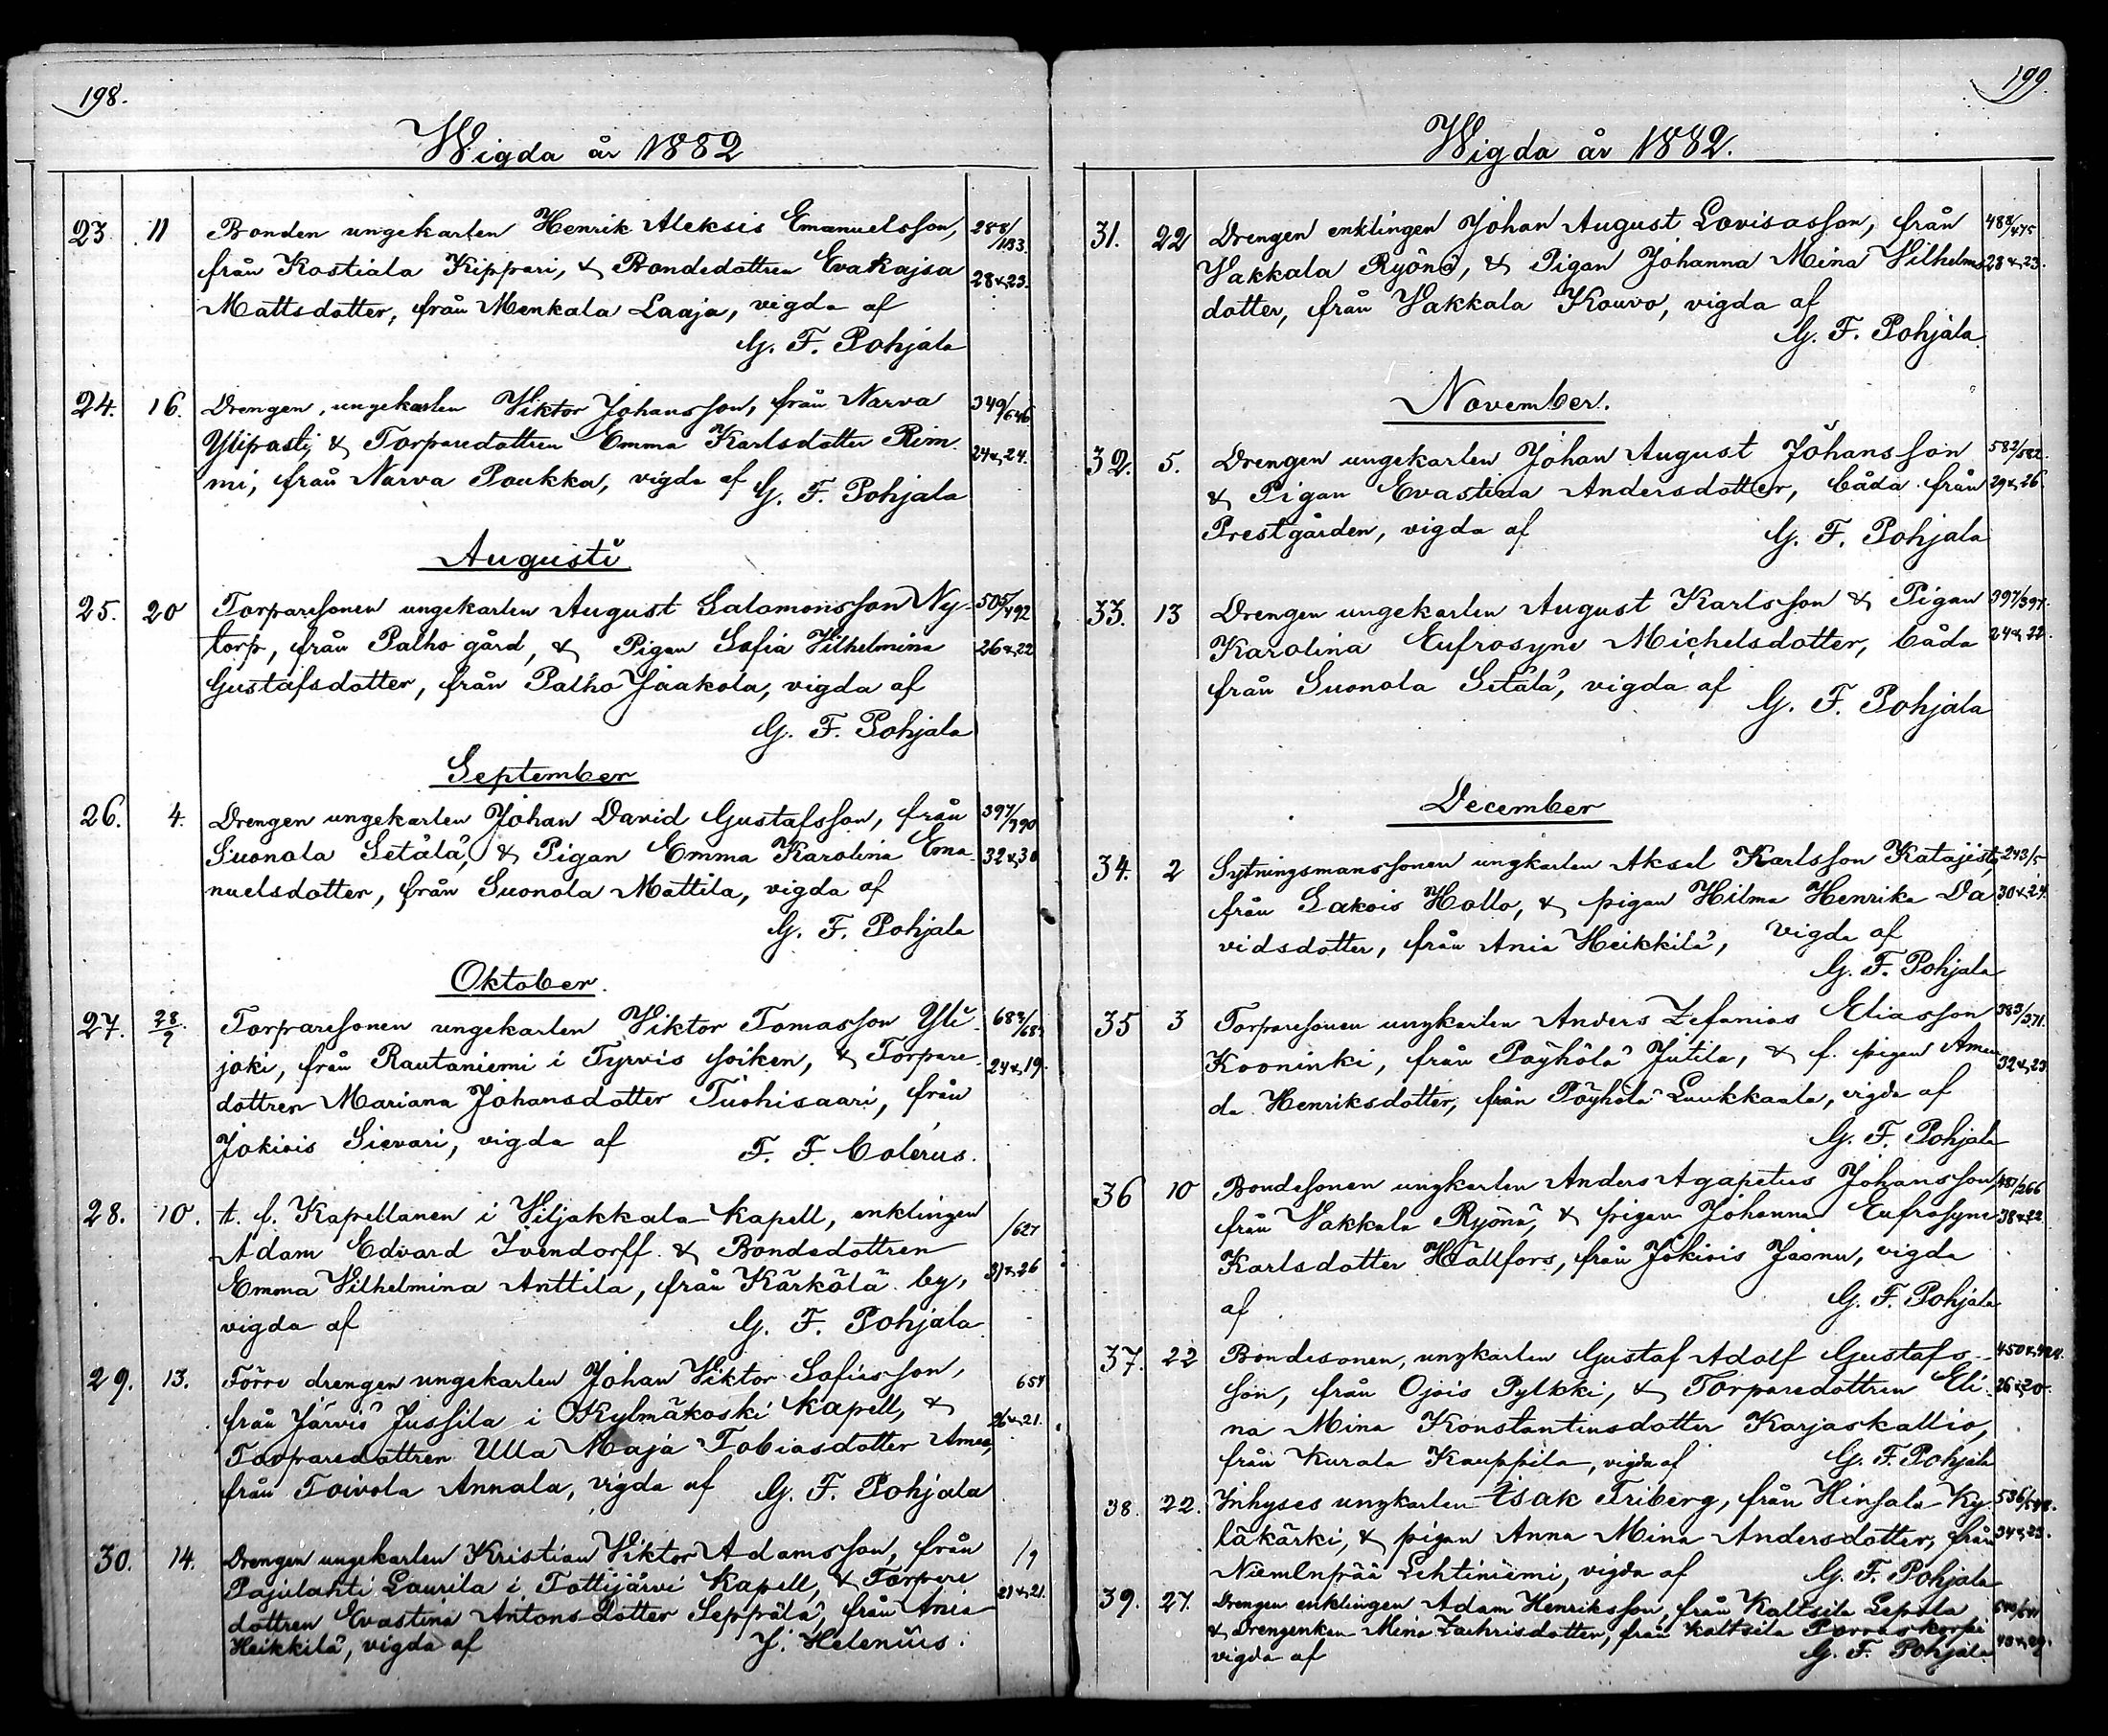 198.
Wigda år 1882
23 11 Bonden ungekarlen Henrik Aleksis Emanuelsson, 288/1133.
från Kostiala Kippari, & Bondedottren Evakajsa 28 & 23.
Mattsdotter, från Menkala Laaja, vigda af
G. F. Pohjala
24. 16. Drengen, ungekarlen Viktor Johansson, från Narva 349/646
Ylipasti, & Torparedottren Emma Karlsdotter Rim 24 & 24.
mi, från Narva Poukka, vigda af G. F. Pohjala
Augusti
25. 20 Torparesonen ungekarlen August Salomonsson Ny- 505/492
torp, från Palho gård, & Pigan Sofia Vilhelmina 26 & 22
Gustafsdotter, från Palho Jaakola, vigda af
G. F. Pohjala
September
26. 4. Drengen ungekarlen Johan David Gustafsson, från 397/390
Suonola Setälä, & Pigan Emma Karolina Ema 32 & 30
nuelsdotter, från Suonola Mattila, vigda af
G. F. Pohjala
Oktober.
27. 28/9 Torparesonen ungekarlen Viktor Tomasson Yli
joki, från Rautaniemi i Tyrvis soiken, & Torpare 24 & 19.
dottren Mariana Johansdotter Tuohisaari, från
Jokiois Sievari, vigda af F. F. Colerus.
28. 10. t. f. Kapellanen i Viljakkala Kapell, enklingen /627
Adam Edvard Ivendorff & Bondedottren
Emma Vilhelmina Anttila, från Kärkölä by, & 26
vigda af G. F. Pohjala
29. 13. Förre drengen ungekarlen Johan Viktor Sofiasson,
från Järvis Jussila i Kylmäkoski Kapell, & 26 & 21.
Torparedottren Ulla Maja Tobiasdotter
från Toivola Annala, vigda af G. F. Pohjala
30. 14. Drengen ungekarlen Kristian Viktor Adamsson, från /9
Pajulahti Laurila i Tottijärvi Kapell, & Torpare 21 & 21.
dottren Evastina Antonsdotter Seppälä, från Ania
Heikkilä, vigda af J. Helenius.
199.
Wigda år 1882.
31. 22 Drengen enklingen Johan August Lovisasson, från 488/475
Vakkala Ryönä, & Pigan Johanna Mina Vilhelms 28 & 23.
dotter, från Vakkala Kouvo, vigda af
G. F. Pohjala
November.
32. 5. Drengen ungekarlen Johan August Johansson 582/582.
& Pigan Evastina Andersdotter, båda från 29 & 26.
Prestgården, vigda af G. F. Pohjala
33. 13 Drengen ungekarlen August Karlsson & Pigan 397/397.
Karolina Eufrosyne Michelsdotter, båda 24 & 22.
från Suonola Setälä, vigda af G. F. Pohjala
December
34. 2 Sytningsmanssonen ungkarlen Aksel Karlsson Katajisto, 243/5
från Sakois Hollo, & pigan Hilma Henrika Da 30 & 24.
vidsdotter, från Ania Heikkilä, vigda af
G. F. Pohjala
35 3 Torparesonen ungkarlen Anders Zefanias Eliasson 383/371.
Kooninki, från Pöyhölä Jutila, & f. pigan Aman 32 & 23
da Henriksdotter, från Pöyhölä Luukkaala, vigda af
G. F. Pohjala
36 10 Bondesonen ungkarlen Anders Agapetus Johansson
från Vakkala Ryönä, & pigan Johanna Eufrosyne 38 & 22.
Karlsdotter Hällfors, från Jokiois Jaonu, vigda
af G. F. Pohjala
37. 22 Bondesonen, ungkarlen Gustaf Adolf Gustafs- 450 & 424.
son, från Ojois Pylkki, & Torparedottren Eli 26 & 20.
na Mina Konstantinsdotter Karjaskallio,
från Kurala Kauppila, vigda af G. F. Pohjala
38. 22. Inhyses ungkarlen Isak Friberg, från Hinsala Ky
läkärki, & pigan Anna Mina Andersdotter, från 34 & 23.
Niemenpää Lehtiniemi, vigda af G. F. Pohjala
39. 27. Drengen enklingen Adam Henriksson, från Kaltsila Lepola
& Drengenkan Mina Zachrisdotter, från Kaltsila Porraskorpi
vigda af G. F. Pohjala